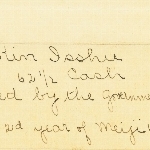 Isshu
62 1/2 Cash
ed by the Governme
2d year of Meiji